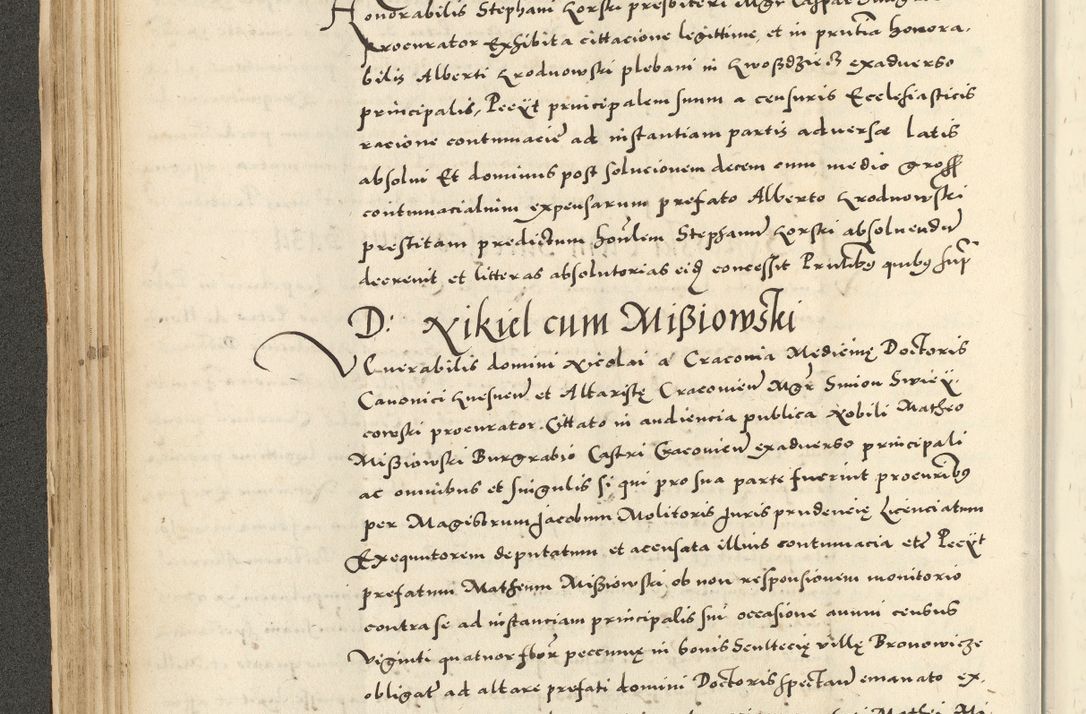 Honorabilis Stephani Gorski presbiteri Mgr Caspar
procurator Exhibita cittacione legittime, et in prntia honora-
bilis Alberti Grodnowski plebani in Gwoßdziecz exadverso
principalis, Peciit principalem suum a censuris Ecclesiasticis
racione contumacie ad instantiam partis adversæ latis
absolui Et dominus post solucionem decem cum medio gross
contumacialium expensarum prefato Alberto Grodnowski
prestitam predictum honlem Stephanu Gorski absoluendu
decreuit et litteras absolutorias eid concessit Prntibus quibus sup
D: Nikiel cum Mißiowski
VEnerabilis domini Nicolai a Craconia Medicinę Doctoris
Canonici Gnesnen et Altaristę Cracouien Mgr Simon Swiey-
cowski procurator. Cittato in audiencia publica Nobili Matheo
Mißiowski Burgrabio Castri Cracouien exadverso principali
ac omnibus et singulis si qui pro sua parte fuerint procuribus
per Magistrum Jacobum Molitoris Juris prudencię Licenciatum
Exequutorem deputatum et accusata illius contumacia etc Peciit
prefatum Matheum Mißiowski ob non responsionem monitorio
contra se ad instanciam principalis sui occasione annui census
viginti quatuor flor peccunię in bonis Scultecię villę Bronowicze
obligat ad altare prefati domini Doctoris spectan emanato ex-